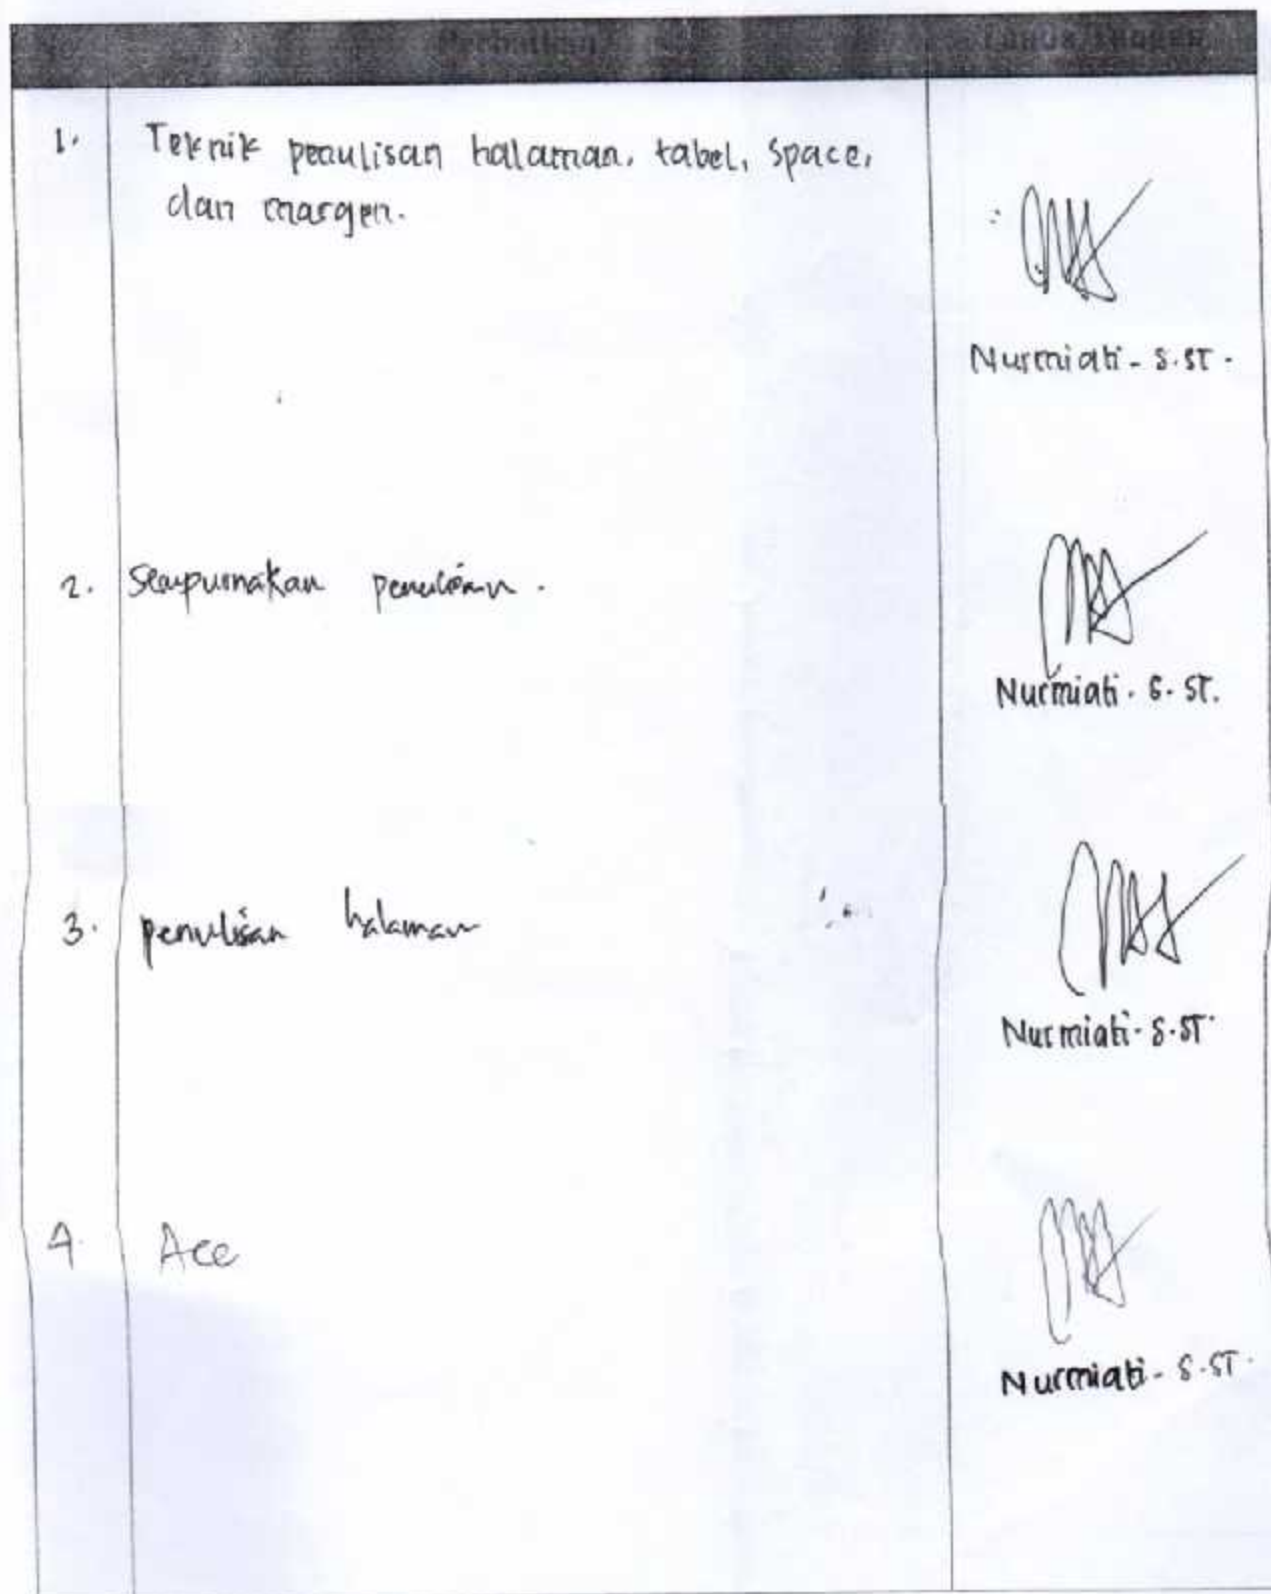 No Perbaikan Tanda Tangan
1. Teknik penulisan halaman, tabel, space,
dan margen.
Nurmiati - S.ST.
2. Sempurnakan penulisan.
Nurmiati. S. ST.
3. penulisan halaman
Nurmiati. S.ST.
4. Acc
Nurmiati - S.ST.